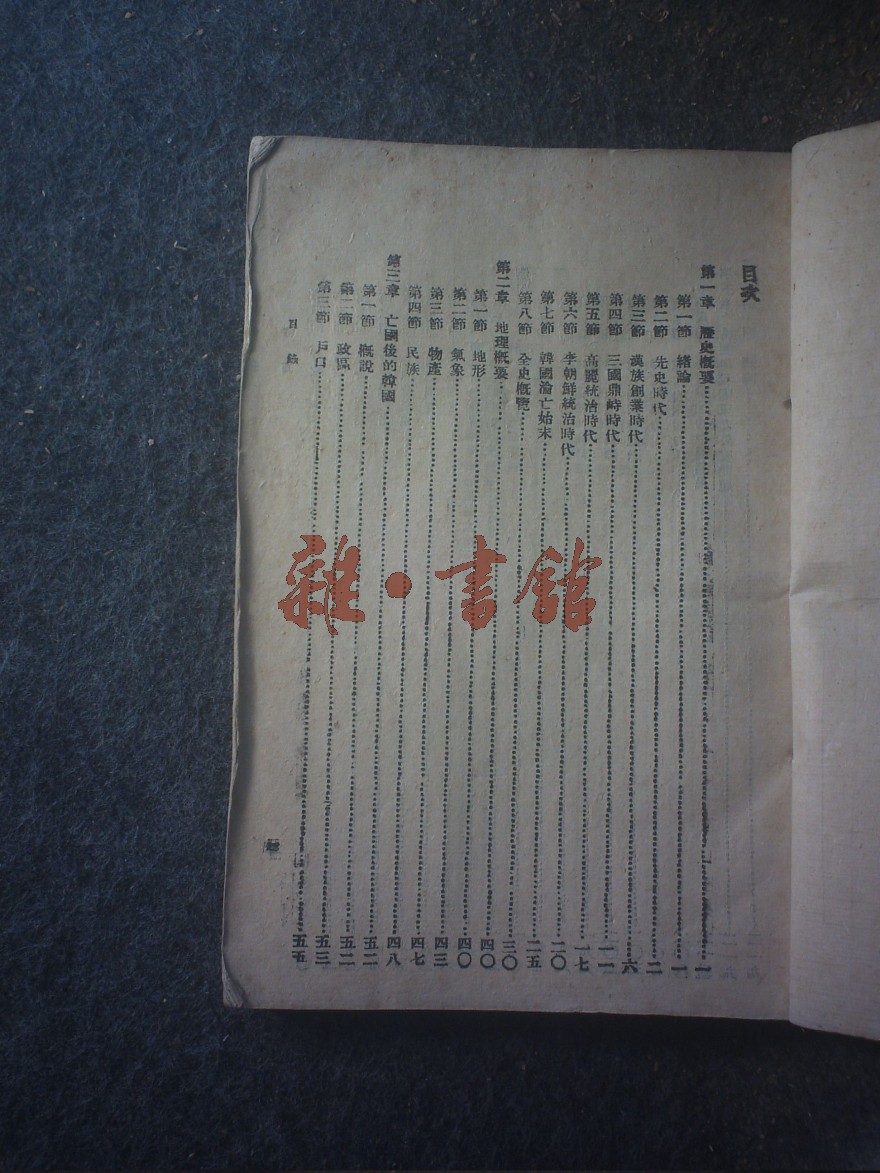 目次
第一章　歷史概要……一
第一節　緒論……一
第二節　先史時代……二
第三節　漢族創業時代……六
第四節　三國鼎峙時代……一一
第五節　高麗統治時代……一七
第六節　李朝鮮統治時代……二〇
第七節　韓國淪亡始末……二五
第八節　全史概覽……三〇
第二章　地理概要……四〇
第一節　地形……四〇
第二節　氣象……四三
第三節　物產……四七
第四節　民族……四八
第三章　亡國後的韓國……五二
第一節　概說……五二
第二節　政區……五三
第三節　戶口……五五
目錄
雜·書館